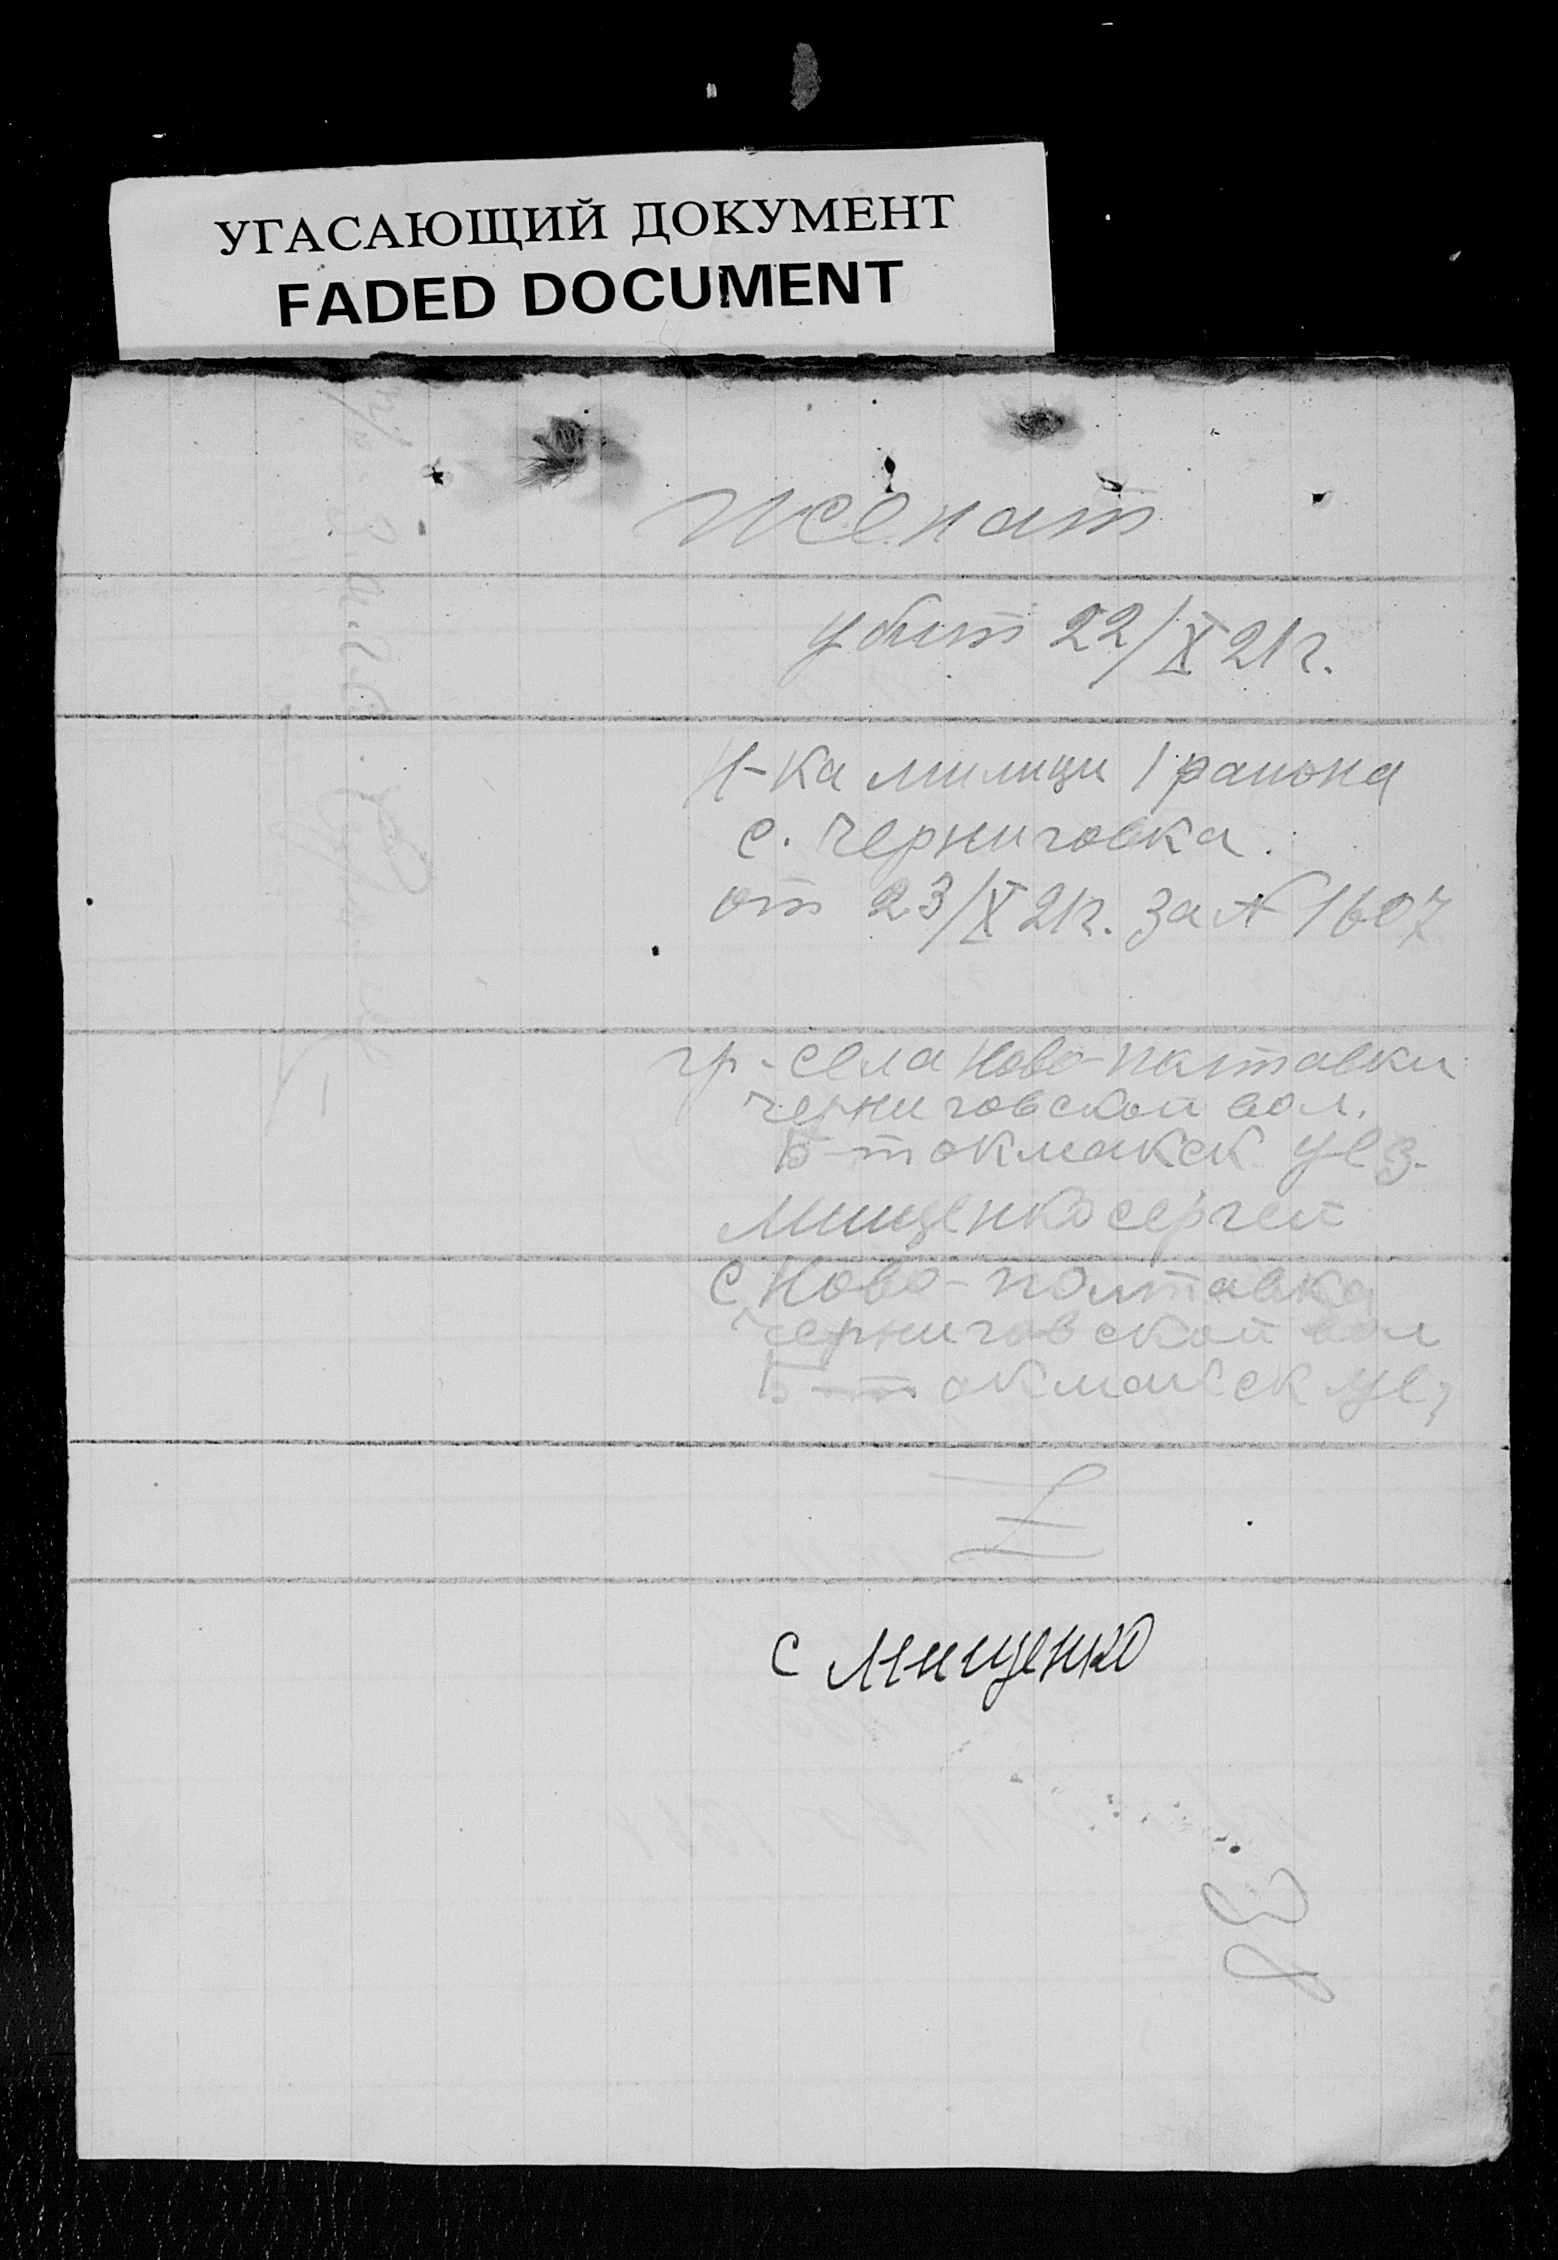 УГАСАЮЩИЙ ДОКУМЕНТ
FADED DOCUMENT
женат
убит 22/X 21г.
Н-ка милици 1 раиона
с. Черниговка.
от 23/X 21г. за № 1607
гр. села Ново-Полтавки
Черниговской вол.
Б-токмакск уез.
Мищенко сергеи
с Ново-Полтавка
Черниговской вол
Б-токмакск уез
С Мищенко